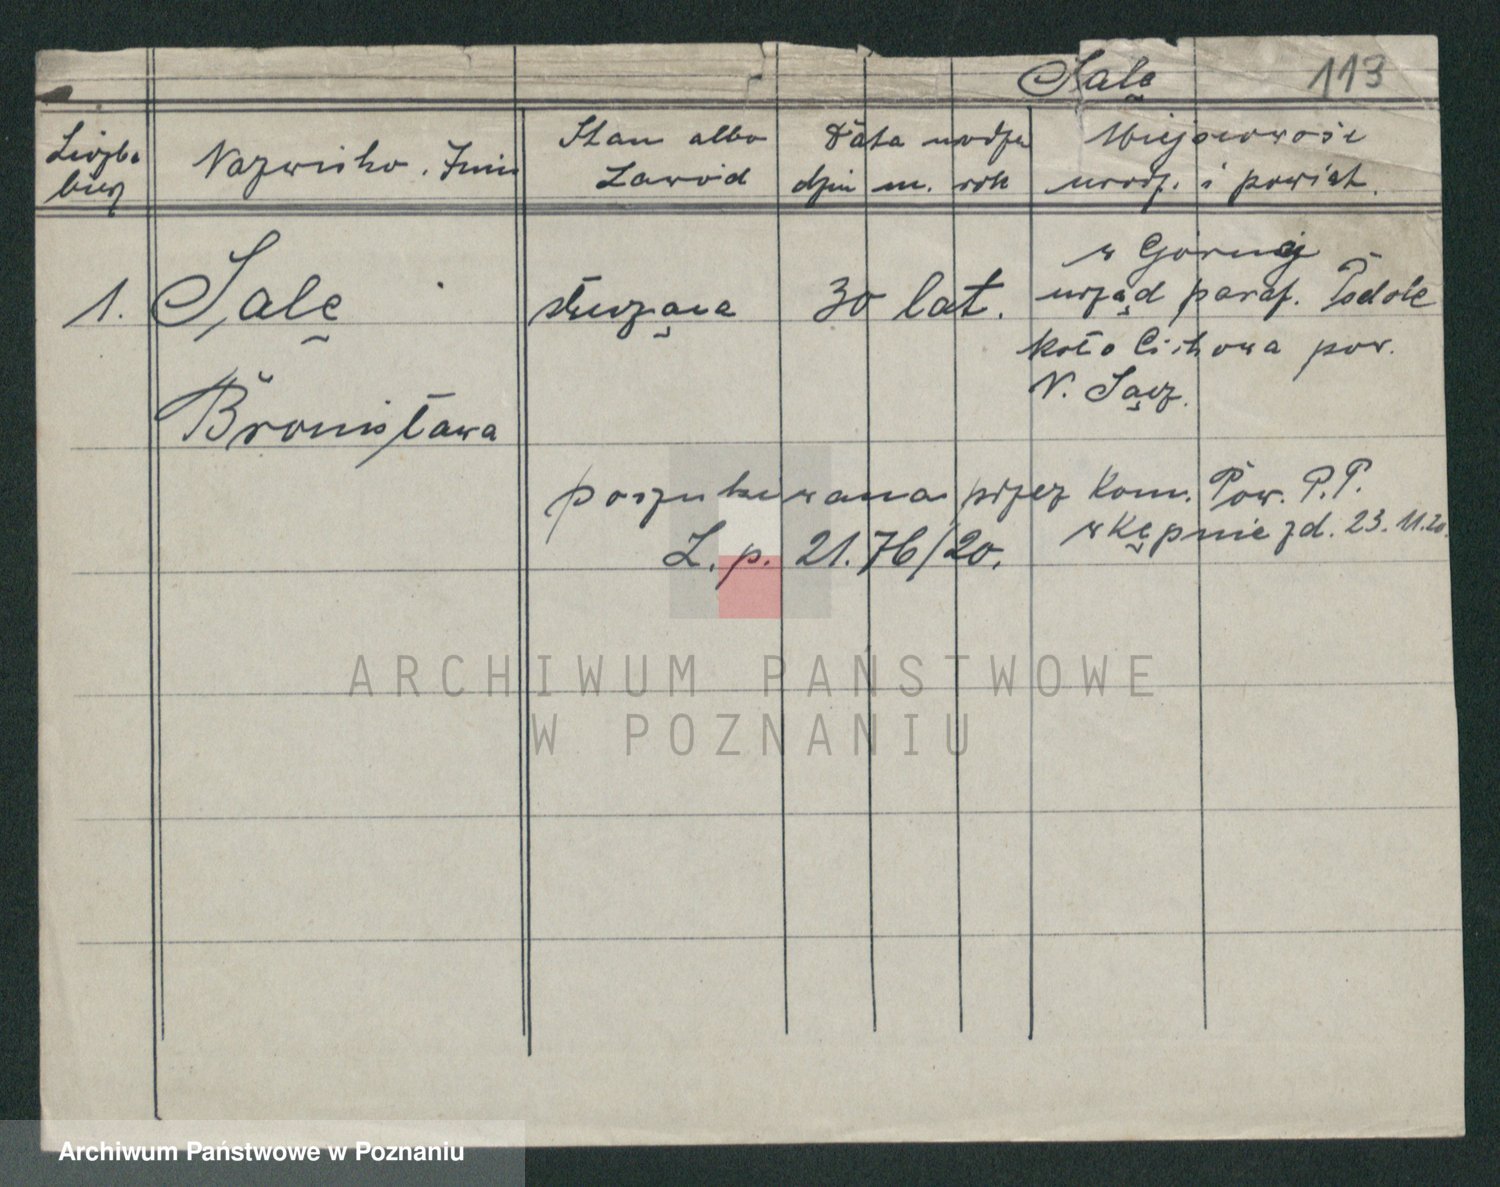 Salę 113
Liczba bież
Nazwisko. Imię
Stan albo Zawód
Data urodze
dzień m. rok
Miejscowość
urodz. i powiat.
1. Salę
Bronisława
służąca
30 lat.
w Górnej
urząd paraf. Podole
koło Cichowa pow.
N. Sącz.
poszukiwana przez Kom. Pow. P.P.
w Kępnie z d. 23.11.20.
L. p. 21.76/20.
ARCHIWUM PAŃSTWOWE
W POZNANIU
Archiwum Państwowe w Poznaniu